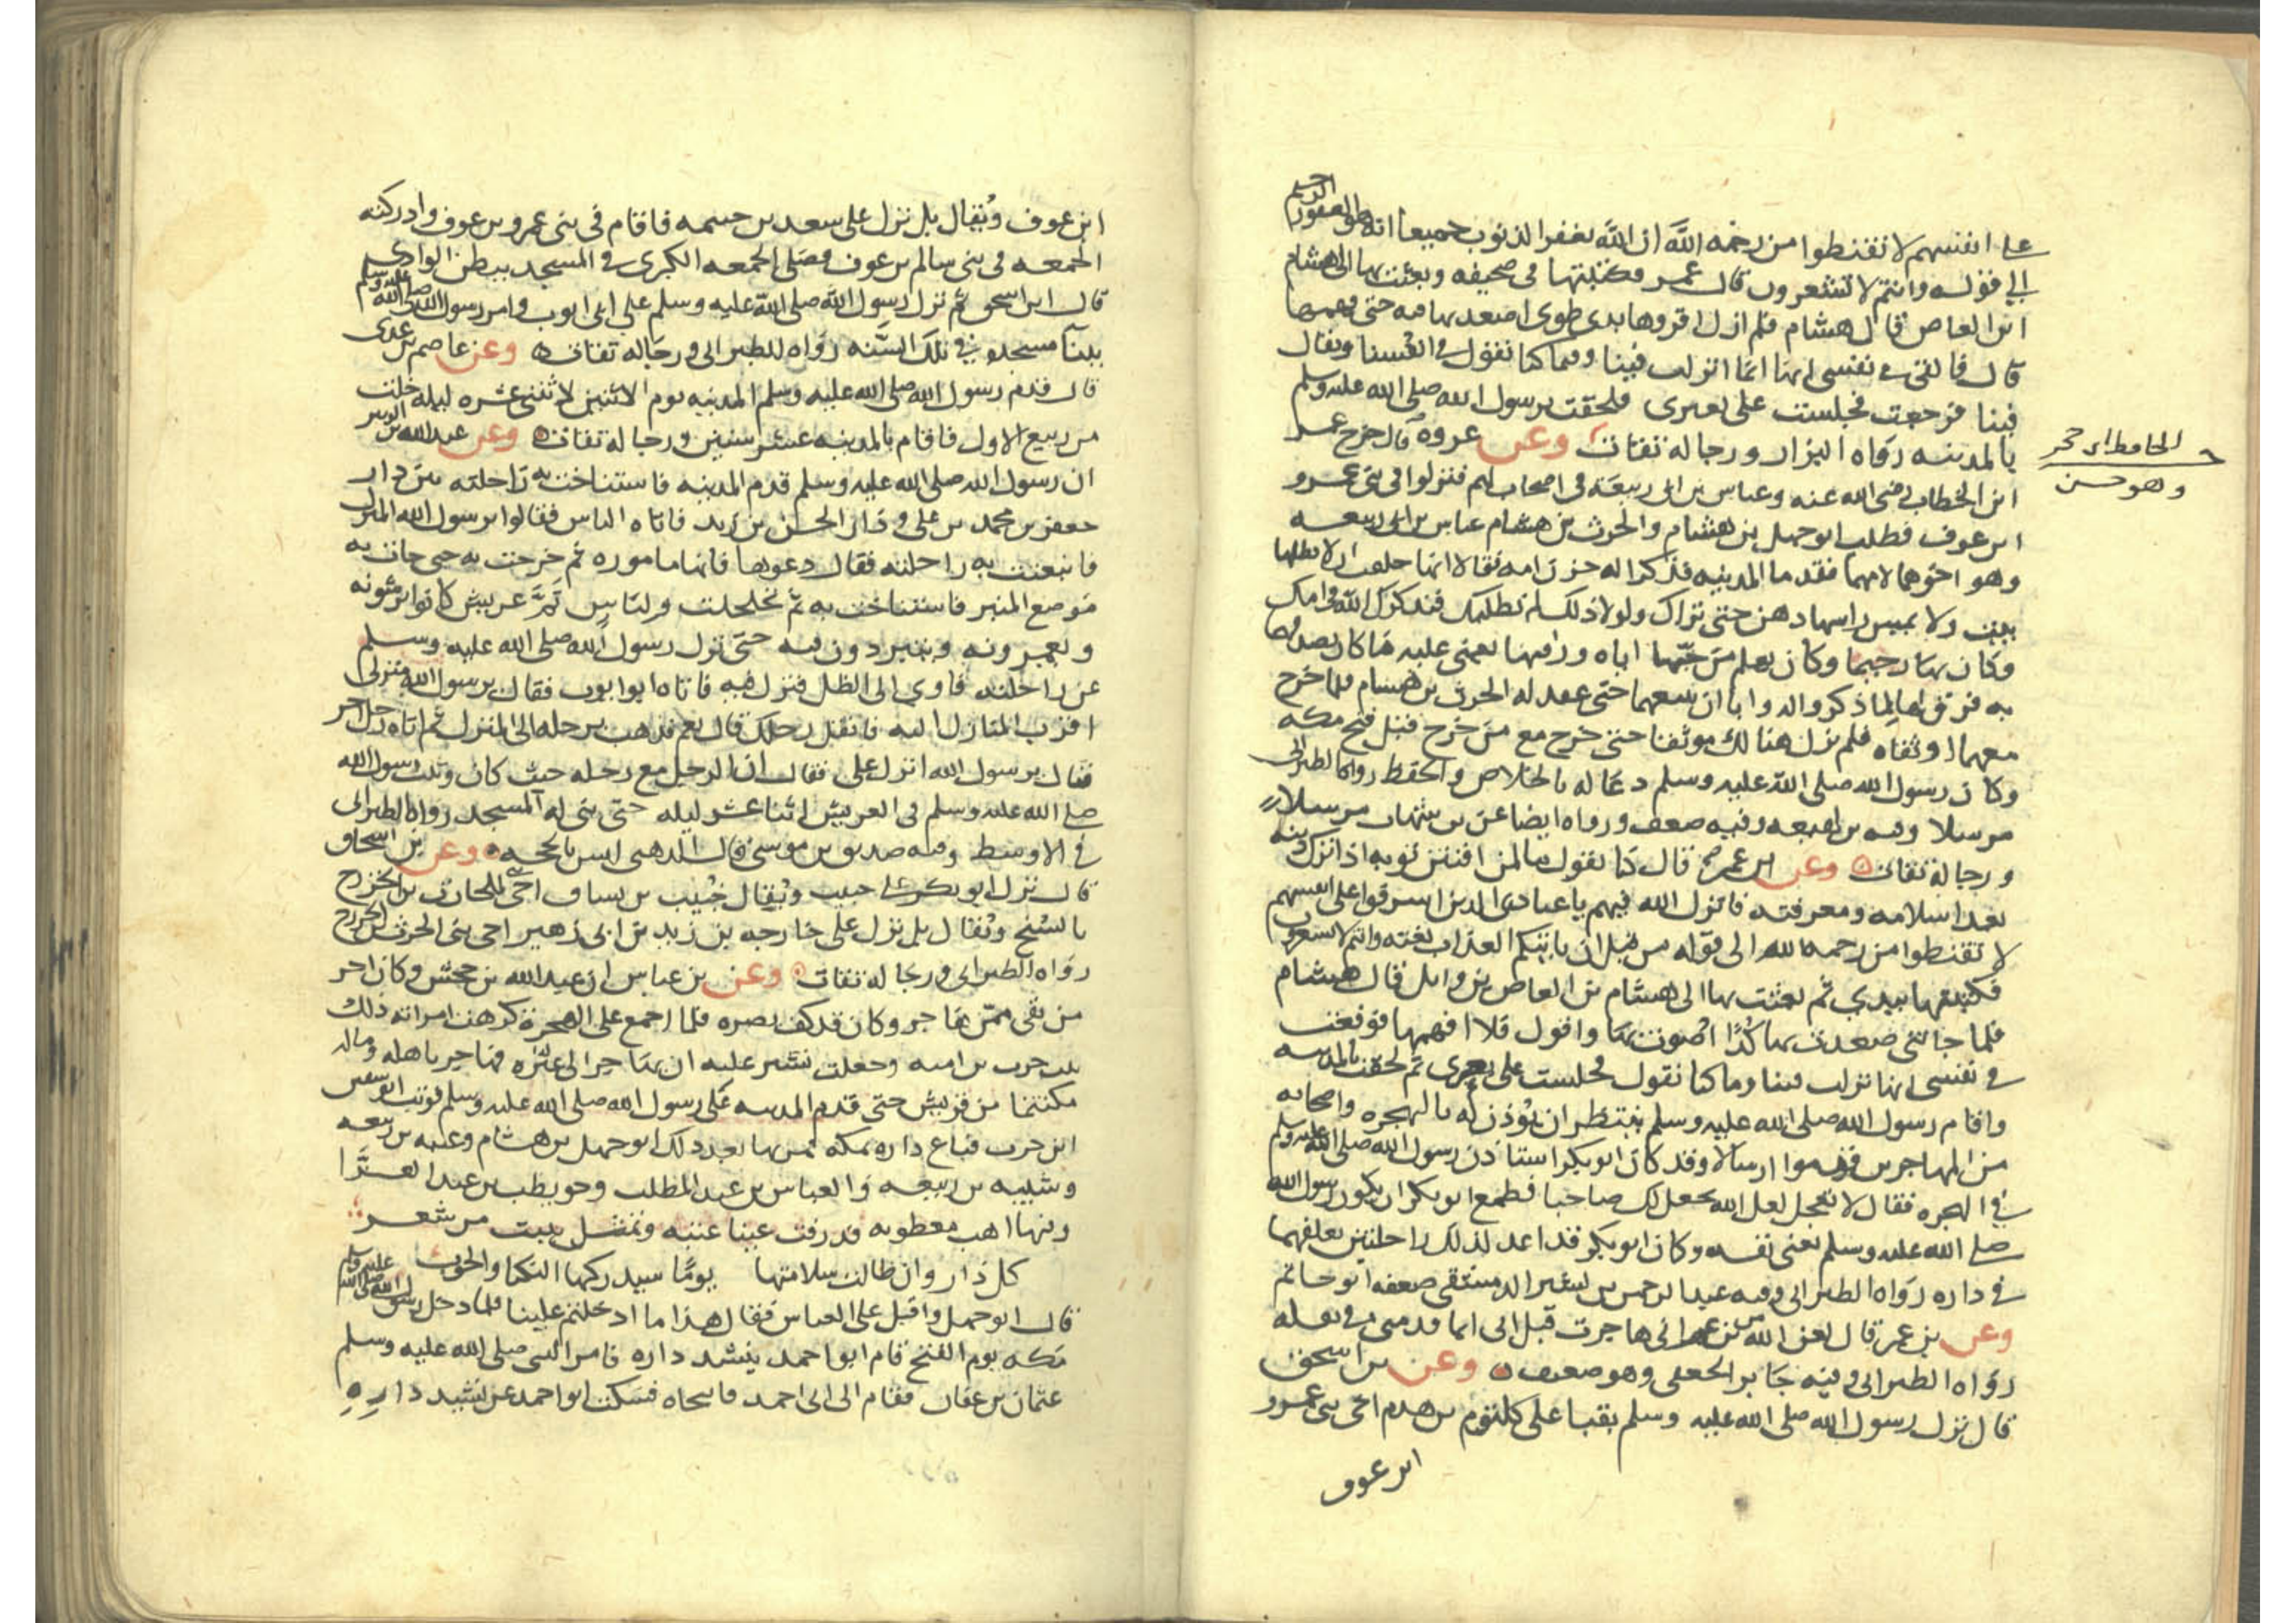 على انفسهم لا تقنطوا من رحمة الله ان الله يغفر الذنوب جميعا انه هو الغفور الرحيم
الى قوله وانتم لا تشعرون قال عمر فكتبتها في صحيفه وبعثت بها الى هشام
ابن العاص قال هشام فلم ازل اقروها بذي طوى اصعد بها فيه حتى فهمتها
قال فالقي في نفسي انها انما انزلت فينا وفيما كنا نقول في انفسنا ويقال
فينا فرجعت فجلست على بعيري فلحقت برسول الله صلى الله عليه وسلم
بالمدينه رواه البزار ورجاله ثقات وعن عروه قال خرج عمر
الحافظ ابن حجر
وهو حسن
ابن الخطاب رضي الله عنه وعياش بن ابي ربيعة في اصحاب لهم فنزلوا في بني عمرو
ابن عوف فطلب ابو جهل بن هشام والحرث بن هشام عياش بن ابي ربيعه
وهو اخوهما لامهما فقدما المدينه فذكرا له حزن امه فقالا انها حلفت ان لا يظلها
بيت ولا يمس راسها دهن حتى تراك ولولا ذلك لم نطلبك فنذكرك الله في امك
وكان بها رحيما وكان يعلم من حبها اياه ورافتها يعني عليه ما كان يصدقهما
به فرق لها لما ذكروا له وابا ان يتبعهما حتى عقد له الحرث بن هشام فلما خرج
معهما اوثقاه فلم يزل هنالك موثقا حتى خرج مع من خرج قبل فتح مكه
وكان رسول الله صلى الله عليه وسلم دعا له بالخلاص والحفظ رواه الطبراني
مرسلا وفيه بن لهيعه وفيه ضعف ورواه ايضا عن بن شهاب مرسلا
ورجاله ثقات وعن ابن عمر قال كنا نقول ما لمن افتتن توبه اذا ترك دينه
بعد اسلامه ومعرفته فانزل الله فيهم ياعبادي الذين اسرفوا على انفسهم
لا تقنطوا من رحمه الله الى قوله من قبل ان ياتيكم العذاب بغته وانتم لا تشعرون
فكتبتها بيدي ثم بعثت بها الى هشام بن العاص بن وايل قال هشام
فلما جاتني صعدت بها كدا اصوت بها واقول فلا افهمها فوقعت
في نفسي انها نزلت فينا وما كنا نقول فجلست على بعيري ثم لحقت بالمدينه
واقام رسول الله صلى الله عليه وسلم ينتظر ان يوذن له بالهجره واصحابه
من المهاجرين قدموا ارسالا وقد كان ابو بكر استاذن رسول الله صلى الله عليه وسلم
في الهجره فقال لا تعجل لعل الله يجعل لك صاحبا فطمع ابو بكر ان يكون رسول الله
صلى الله عليه وسلم يعني نفسه وكان ابو بكر قد اعد لذلك راحلتين يعلفهما
في داره رواه الطبراني وفيه عبد الرحمن بن بشير الدمشقي ضعفه ابو حاتم
وعن بن عمر قال لعن الله من زعم اني هاجرت قبل ابي انما قدمني في ثقله
رواه الطبراني وفيه جابر الجعفي وهو ضعيف وعن بن اسحق
قال نزل رسول الله صلى الله عليه وسلم بقبا على كلثوم بن هدم اخي بني عمرو
ابن عوف
ابن عوف ويقال بل نزل على سعد بن خيثمه فاقام في بني عمرو بن عوف وادركته
الجمعه في بني سالم بن عوف فصلى الجمعه الكبرى في المسجد ببطن الوادي
قال ابن اسحق ثم نزل رسول الله صلى الله عليه وسلم على ابي ايوب وامر رسول الله صلى الله عليه وسلم
ببنا مسجده في تلك السنه رواه الطبراني ورجاله ثقات وعن عاصم بن عدي
قال قدم رسول الله صلى الله عليه وسلم المدينه يوم الاثنين لاثنتي عشره ليله خلت
من ربيع الاول فاقام بالمدينه عشر سنين ورجاله ثقات وعن عبد الله بن الزبير
ان رسول الله صلى الله عليه وسلم قدم المدينه فاستناخت به راحلته بين دار
جعفر بن محمد بن علي ودار الحسن بن زيد فاتاه الناس فقالوا يرسول الله المنزل
فانبعثت به راحلته فقال دعوها فانها ماموره ثم خرجت به حتى جات به
موضع المنبر فاستناخت به ثم تحلحلت ولناس ثم عريش كانوا يرشونه
ويعمرونه ويتبردون فيه حتى نزل رسول الله صلى الله عليه وسلم
عن راحلته فاوى الى الظل فنزل فيه فاتاه ابو ايوب فقال يرسول الله منزلي
اقرب المنازل اليه فانقل رحلك قال نعم فذهب برحله الى المنزل ثم اتاه رجل اخر
فقال يرسول الله انزل علي فقال ان الرجل مع رحله حيث كان وثبت رسول الله
صلى الله عليه وسلم في العريش اثنا عشر ليله حتى بنى له المسجد رواه الطبراني
في الاوسط وفيه صديق بن موسى قال الذهبي ليس بالحجه وعن بن اسحاق
قال نزل ابو بكر على حبيب ويقال خبيب بن يساف اخي بلحارث بن الخزرج
بالسنح ويقال بل نزل على خارجه بن زيد بن ابي زهير اخي بني الحرث بن الخزرج
رواه الطبراني ورجاله ثقات وعن بن عباس ان عبد الله بن جحش وكان اخر
من بقي ممن هاجر وكان قد كف بصره فلما اجمع على الهجرة كرهت امراته ذلك
بنت حرب بن اميه وجعلت تشير عليه ان يهاجر الى غيره فهاجر باهله وماله
مكتتما من قريش حتى قدم المدينه على رسول الله صلى الله عليه وسلم فوثب ابو سفين
ابن حرب فباع داره بمكه فمر بها بعد ذلك ابو جهل بن هشام وعتبه بن ربيعه
وشيبه بن ربيعه والعباس بن عبد المطلب وحويطب بن عبد العزا
وفيها اهب معطونه فذرفت عينا عتبه وتمثل ببيت من شعر
كل دار وان طالت سلامتها يومًا سيدركها النكبا والحوب
قال ابو جهل واقبل على العباس فقال هذا ما ادخلتم علينا فلما دخل رسول الله صلى الله عليه وسلم
مكه يوم الفتح قام ابو احمد ينشد داره فامر النبي صلى الله عليه وسلم
عثمان بن عفان فقام الى ابي احمد فانتحاه فسكت ابو احمد عن نشيد داره